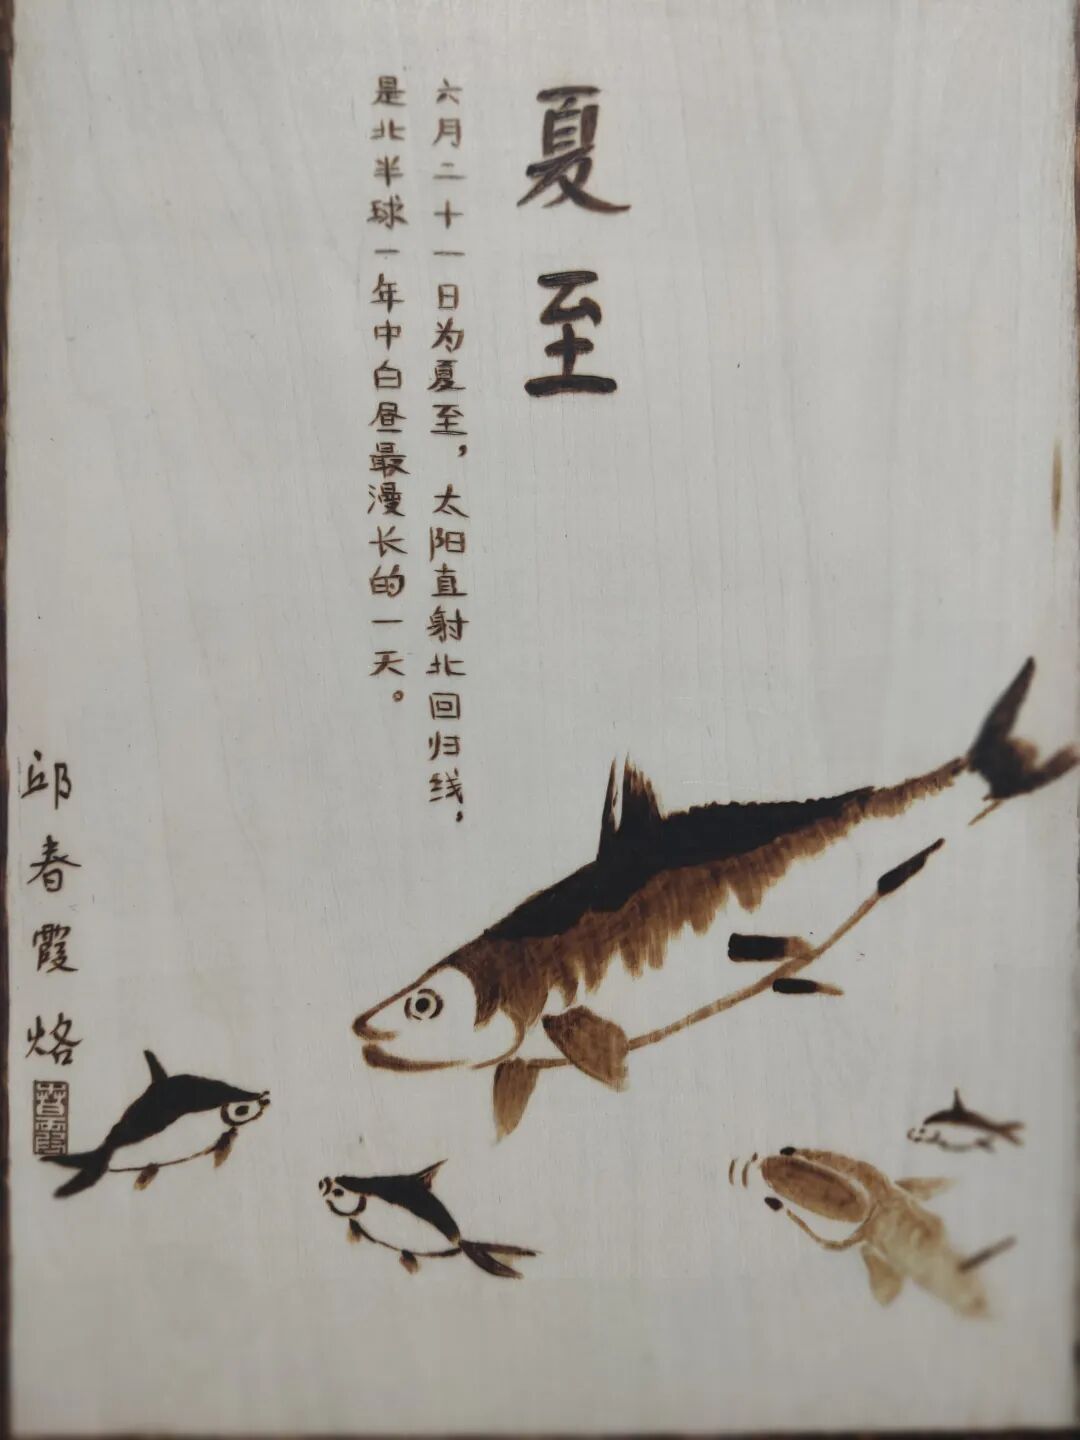 夏至
六月二十一日为夏至，太阳直射北回归线，
是北半球一年中白昼最漫长的一天。
邱春霞烙